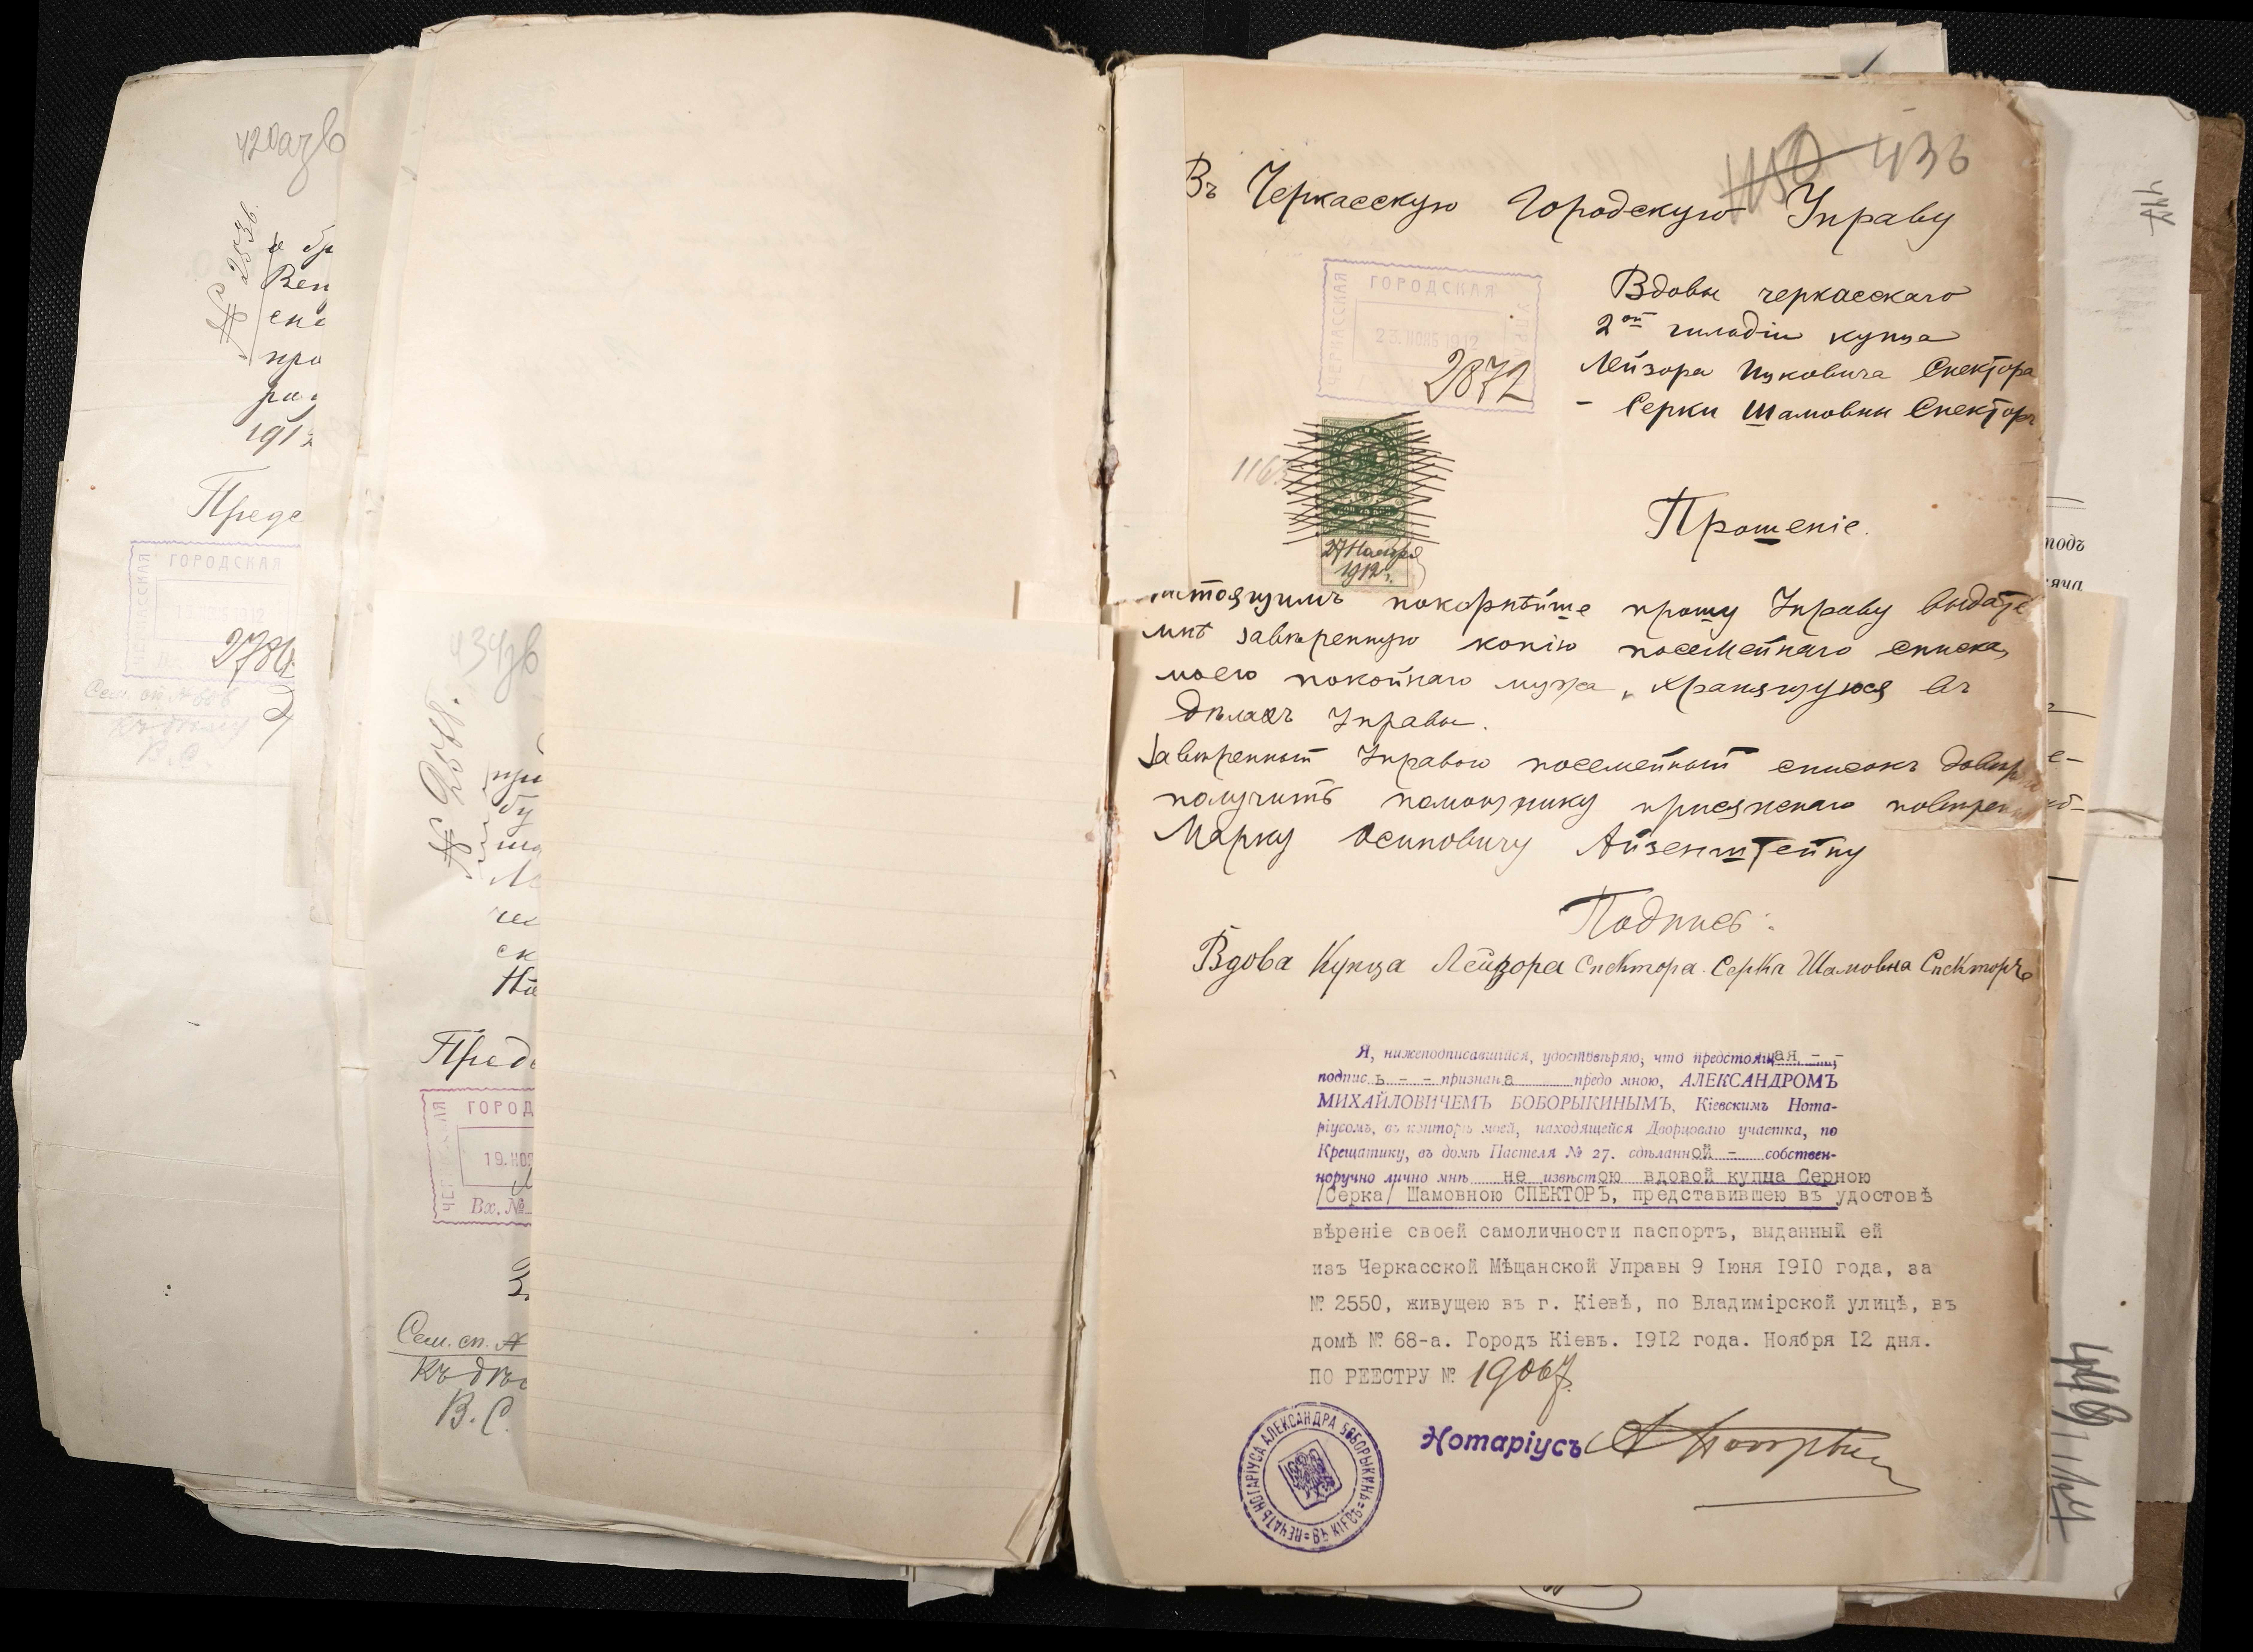 420
№ 203
Вен
спи
про
1912
Предс
ГОРОДСКАЯ
2784
Сем. сп. №
Къ дѣлу
В. С.
434
№
при
бу
ск
Предс
ГОРОД
19. НОЯ
Вх. №
Сем. сп. №
Къ дѣл
В. С.
436
Въ Черкасскую Городскую Управу
ЧЕРКАССКАЯ ГОРОДСКАЯ
23. НОЯБ 1912
2872
Вдовы черкасскаго
2ой гильдіи купца
Лейзора Ицковича Спектора
- Серки Шамовны Спекторъ
116
27 Ноября
1912 г.
Прошеніе.
стоящимъ покорнѣйше прошу Управу выдать
мнѣ завѣренную копію посемейнаго списка
моего покойнаго мужа, хранящуюся въ
дѣлахъ Управы.
Завѣренный Управою посемейный списокъ довѣр
получить помощнику присяжнаго повѣрен
Марку Осиповичу Айзенштейну
Подпись:
Вдова Купца Лейзора Спектора Серка Шамовна Спекторъ
Я, нижеподписавшійся, удостовѣряю, что предстоящая - -
подпись - - признана предо мною, АЛЕКСАНДРОМЪ
МИХАЙЛОВИЧЕМЪ БОБОРЫКИНЫМЪ, Кіевскимъ Нота-
ріусомъ, въ конторѣ моей, находящейся Дворцоваго участка, по
Крещатику, въ домѣ Пастеля № 27. сдѣланной - собствен-
норучно лично мнѣ не извѣстою вдовой купца Серною
/Серка/ Шамовною СПЕКТОРЪ, представившею въ удостовѣ
вѣреніе своей самоличности паспортъ, выданный ей
изъ Черкасской Мѣщанской Управы 9 Іюня 1910 года, за
№ 2550, живущею въ г. Кіевѣ, по Владимірской улицѣ, въ
домѣ № 68-а. Городъ Кіевъ. 1912 года. Ноября 12 дня.
ПО РЕЕСТРУ № 19067.
Нотаріусъ
ПЕЧАТЬ НОТАРІУСА АЛЕКСАНДРА БОБОРЫКИНА ВЪ КІЕВѢ
447